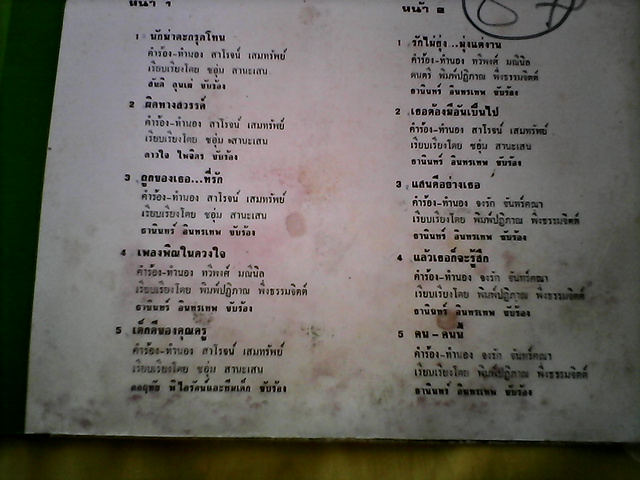 หน้า 1
1 นักฆ่าตะกรุดโทน
คำร้อง-ทำนอง สาโรจน์ เสมทรัพย์
เรียบเรียงโดย ชอุ่ม สานะเสน
ขับร้อง
2 ผิดทางสวรรค์
คำร้อง-ทำนอง สาโรจน์ เสมทรัพย์
เรียบเรียงโดย ชอุ่ม สานะเสน
ดาวใจ ไพจิตร ขับร้อง
3 ถูกของเธอ...ที่รัก
คำร้อง-ทำนอง สาโรจน์ เสมทรัพย์
เรียบเรียงโดย ชอุ่ม สานะเสน
ธานินทร์ อินทรเทพ ขับร้อง
4 เพลงพิณในดวงใจ
คำร้อง-ทำนอง ทวีพงศ์ มณีนิล
เรียบเรียงโดย พิมพ์ปฏิภาณ พึ่งธรรมจิตต์
ธานินทร์ อินทรเทพ ขับร้อง
5 เด็กดีของคุณครู
คำร้อง-ทำนอง สาโรจน์ เสมทรัพย์
เรียบเรียงโดย ชอุ่ม สานะเสน
และทีมเด็ก ขับร้อง
หน้า ๒
1 รักไม่ยุ่ง..มุ่งแต่งาน
คำร้อง-ทำนอง ทวีพงศ์ มณีนิล
ดนตรี พิมพ์ปฏิภาณ พึ่งธรรมจิตต์
ธานินทร์ อินทรเทพ ขับร้อง
2 เธอต้องมีอันเป็นไป
คำร้อง-ทำนอง สาโรจน์ เสมทรัพย์
เรียบเรียงโดย ชอุ่ม สานะเสน
ธานินทร์ อินทรเทพ ขับร้อง
3 แสนดีอย่างเธอ
คำร้อง-ทำนอง จงรัก จันทร์คณา
เรียบเรียงโดย พิมพ์ปฏิภาณ พึ่งธรรมจิตต์
ธานินทร์ อินทรเทพ ขับร้อง
4 แล้วเธอก็จะรู้สึก
คำร้อง-ทำนอง จงรัก จันทร์คณา
เรียบเรียงโดย พิมพ์ปฏิภาณ พึ่งธรรมจิตต์
ธานินทร์ อินทรเทพ ขับร้อง
5 คน-คนนี้
คำร้อง-ทำนอง จงรัก จันทร์คณา
เรียบเรียงโดย พิมพ์ปฏิภาณ พึ่งธรรมจิตต์
ธานินทร์ อินทรเทพ ขับร้อง